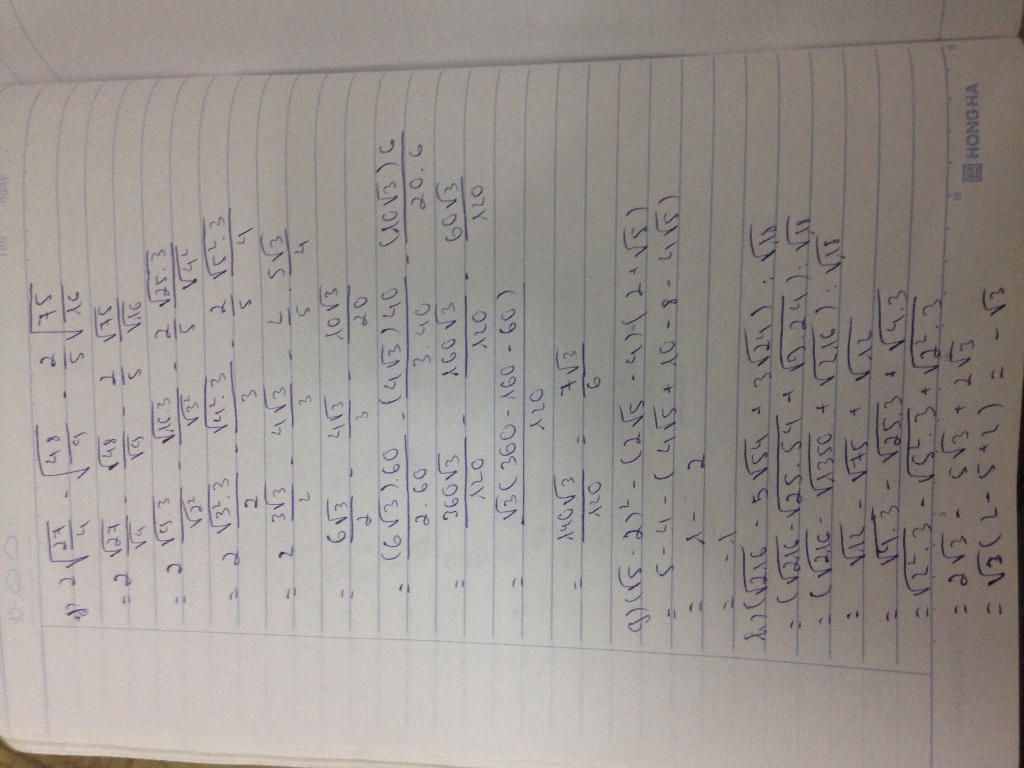 f) 2√(27/4) - √(48/9) - 2/5 √(75/16)
= 2 √27/√4 - √48/√9 - 2/5 √75/√16
= 2 √(9.3)/√2² - √(16.3)/√3² - 2/5 √(25.3)/√4²
= 2 √(3².3)/2 - √(4².3)/3 - 2/5 √(5².3)/4
= 2 3√3/2 - 4√3/3 - 2/5 5√3/4
= 6√3/2 - 4√3/3 - 10√3/20
= (6√3).60/2.60 - (4√3)40/3.40 - (10√3)6/20.6
= 360√3/120 - 160√3/120 - 60√3/120
= √3(360-160-60)/120
= 140√3/120 = 7√3/6
g) (√5-2)² - (2√5-4)(2+√5)
= 5-4 - (4√5+10-8-4√5)
= 1 - 2
= -1
h) (√216 - 5√54 + 3√24) : √18
= (√216 - √25.54 + √9.24) : √18
= (√216 - √1350 + √216) : √18
= √12 - √75 + √12
= √4.3 - √25.3 + √4.3
= √2².3 - √5².3 + √2².3
= 2√3 - 5√3 + 2√3
= √3(2-5+2) = -√3
HONG HA